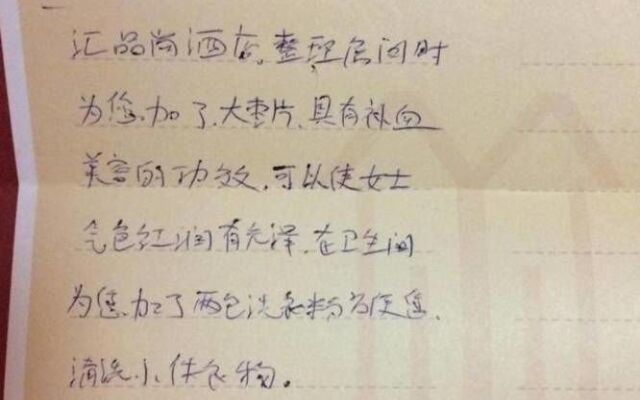 汇品尚酒店,整理房间时
为您加了大枣片,具有补血
美容的功效,可以使女士
气色红润有光泽,在卫生间
为您加了两包洗衣粉方便您,
清洗小件衣物。